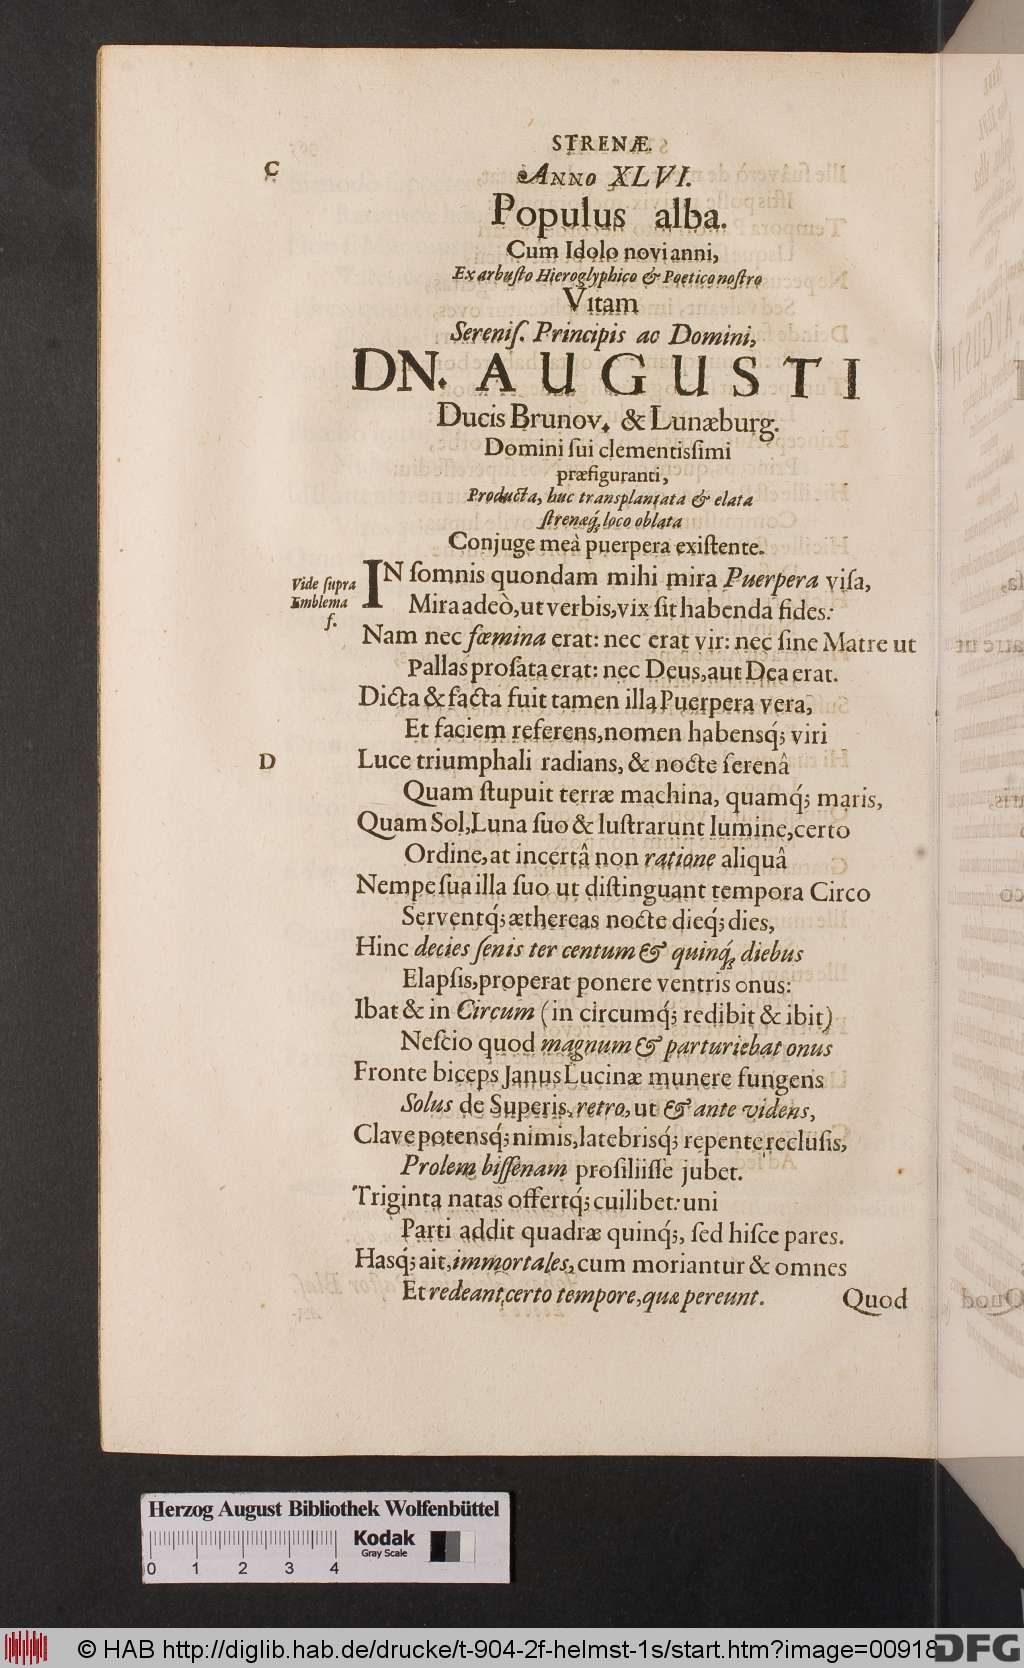 STRENÆ.
C
ANNO XLVI.
Populus alba.
Cum Idolo novi anni,
Ex arbuſto Hieroglyphico & Poetico noſtro
Vitam
Sereniſ. Principis ac Domini,
DN. AUGUSTI
Ducis Brunov. & Lunæburg.
Domini ſui clementiſſimi
præfiguranti,
Producta, huc transplantata & elata
ſtrenæq́; loco oblata
Conjuge meà puerpera exiſtente.
Vide ſupra
Emblema
f.
IN ſomnis quondam mihi mira Puerpera viſa,
Mira adeò, ut verbis, vix ſit habenda fides:
Nam nec fœmina erat: nec erat vir: nec ſine Matre ut
Pallas proſata erat: nec Deus, aut Dea erat.
Dicta & facta fuit tamen illa Puerpera vera,
Et faciem referens, nomen habensq́; viri
D
Luce triumphali radians, & nocte ſerenâ
Quam ſtupuit terræ machina, quamq́; maris,
Quam Sol, Luna ſuo & luſtrarunt lumine, certo
Ordine, at incertâ non ratione aliquâ
Nempe ſua illa ſuo ut diſtinguant tempora Circo
Serventq́; æthereas nocte dieq́; dies,
Hinc decies ſenis ter centum & quinq́; diebus
Elapſis, properat ponere ventris onus:
Ibat & in Circum (in circumq́; redibit & ibit)
Neſcio quod magnum & parturiebat onus
Fronte biceps Janus Lucinæ munere fungens
Solus de Superis, retro, ut & ante videns,
Clave potensq́; nimis, latebrisq́; repente recluſis,
Prolem biſſenam proſiliiſſe jubet.
Triginta natas offertq́; cuilibet: uni
Parti addit quadræ quinq́;, ſed hiſce pares.
Hasq́; ait, immortales, cum moriantur & omnes
Et redeant, certo tempore, quæ pereunt.
Quod
Herzog August Bibliothek Wolfenbüttel
Kodak
Gray Scale
0 1 2 3 4
© HAB http://diglib.hab.de/drucke/t-904-2f-helmst-1s/start.htm?image=00918
DFG